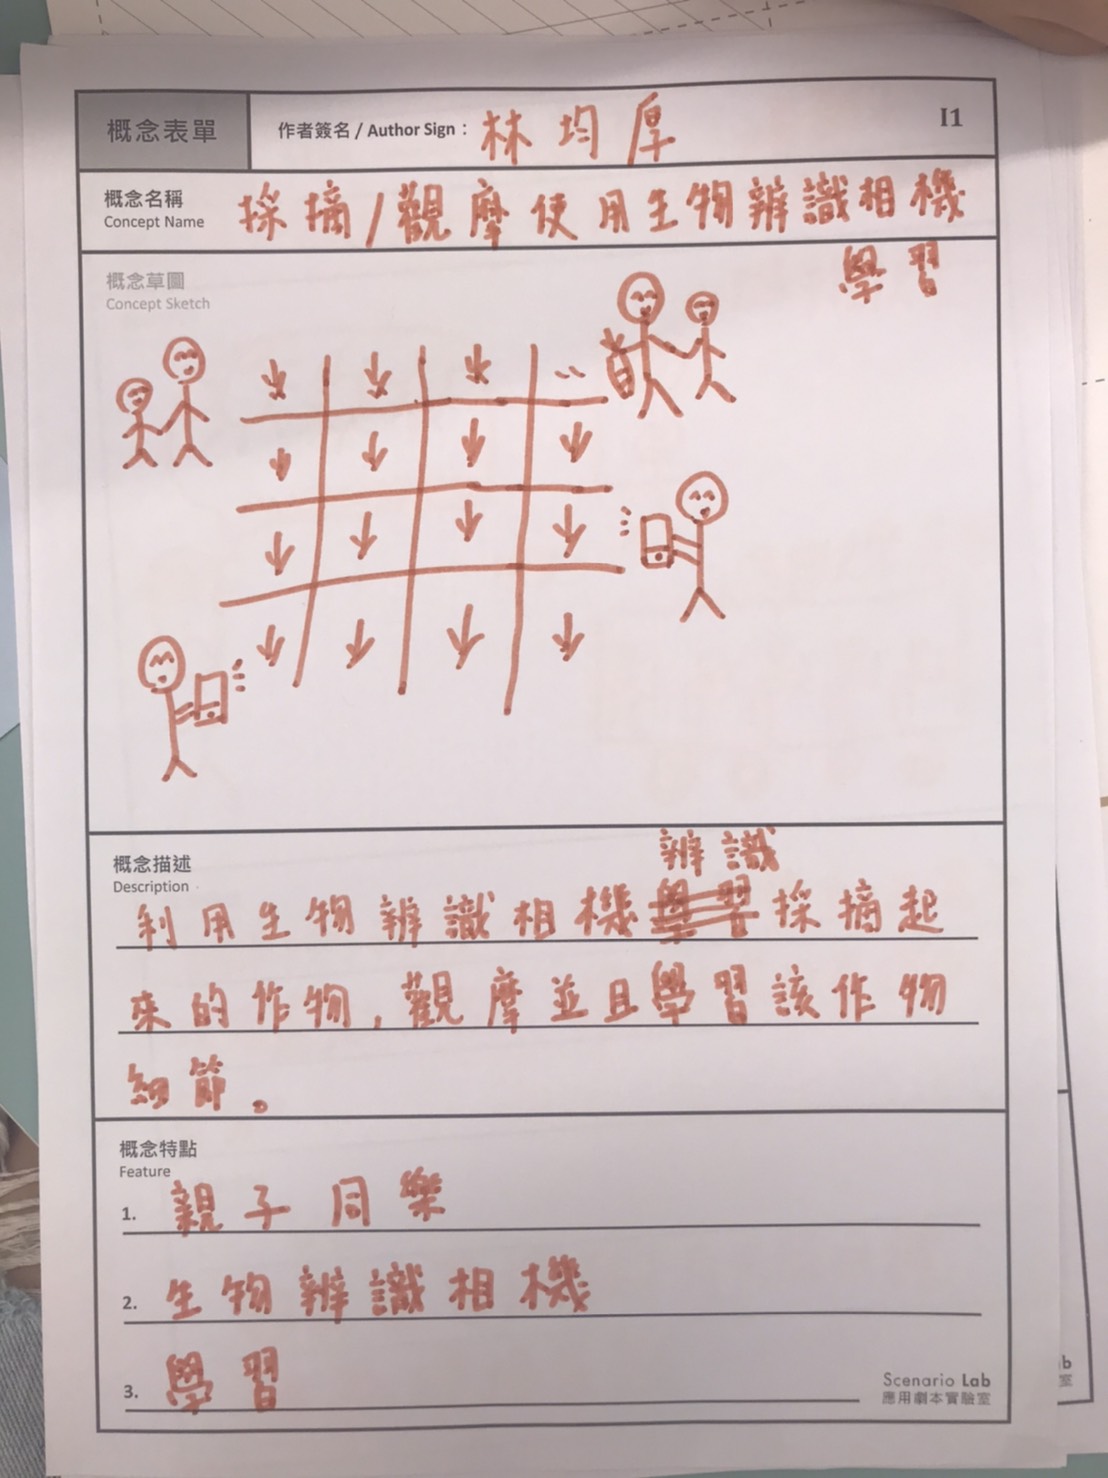 概念表單
作者簽名 / Author Sign：林均厚
I1
概念名稱
Concept Name
採摘/觀摩使用生物辨識相機
學習
概念草圖
Concept Sketch
概念描述
Description
辨識
利用生物辨識相機學習採摘起
來的作物，觀摩並且學習該作物
細節。
概念特點
Feature
1. 親子同樂
2. 生物辨識相機
3. 學習
Scenario Lab
應用劇本實驗室
b
室